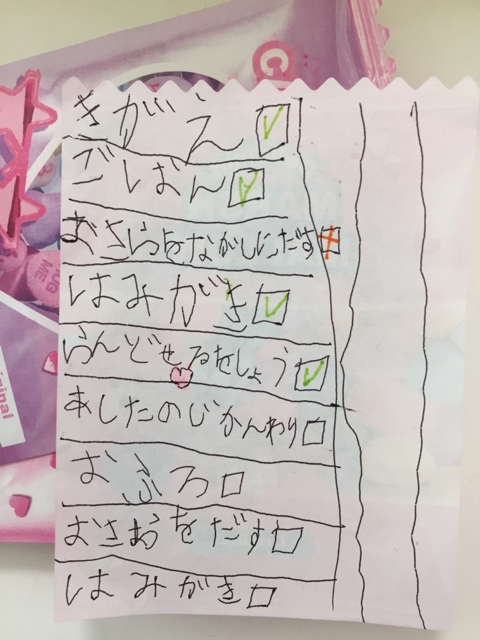 きがえ
ごはん
おさらをながしにだす
はみがき
らんどせるをしょう
あしたのじかんわり
おふろ
おさおをだす
はみがき
HUG ME
iginal